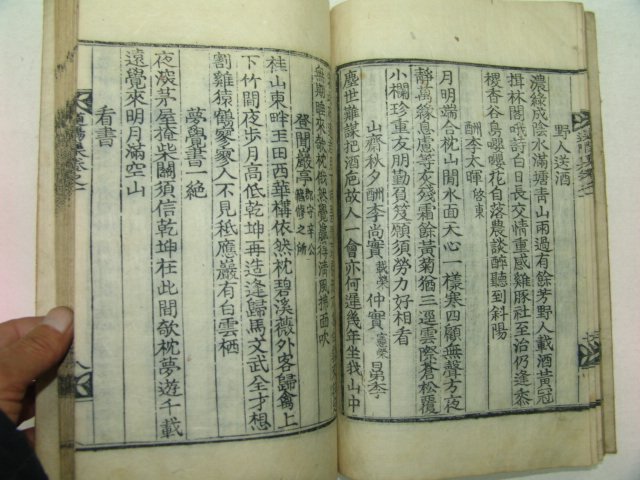 野人送酒
濃綠成陰水滿塘青山雨過有餘芳野人載酒黃冠
揖林閣哦詩白日長交情重感雞豚社至治仍逢黍
稷香谷鳥嚶嚶花自落農談醉聽到斜陽
酬李太暉啓東
月明端合枕山閒水面天心一樣寒四顧無聲方夜
靜萬緣息慮等灰殘霜餘黃菊猶三逕雲際蒼松覆
小欄珍重友朋勤苦筏願須勞力好相看
山齋秋夕酬李尚實載榮仲實憲榮昆季
塵世難謀把酒巵故人一會亦何遲幾年坐我山中
無期睡來欹枕偶然羲皥得淸風拂面吹
登聞巖亭
桂山東畔玉田西華構依然枕碧溪薇外客歸禽上
下竹間夜步月高低乾坤再造逢歸馬文武全才想
割雞猿鶴寥寥人不見秪應巖有白雲栖
夢覺書一絶
夜深茅屋掩柴關須信乾坤在此間欹枕夢遊千載
遠覺來明月滿空山
看書